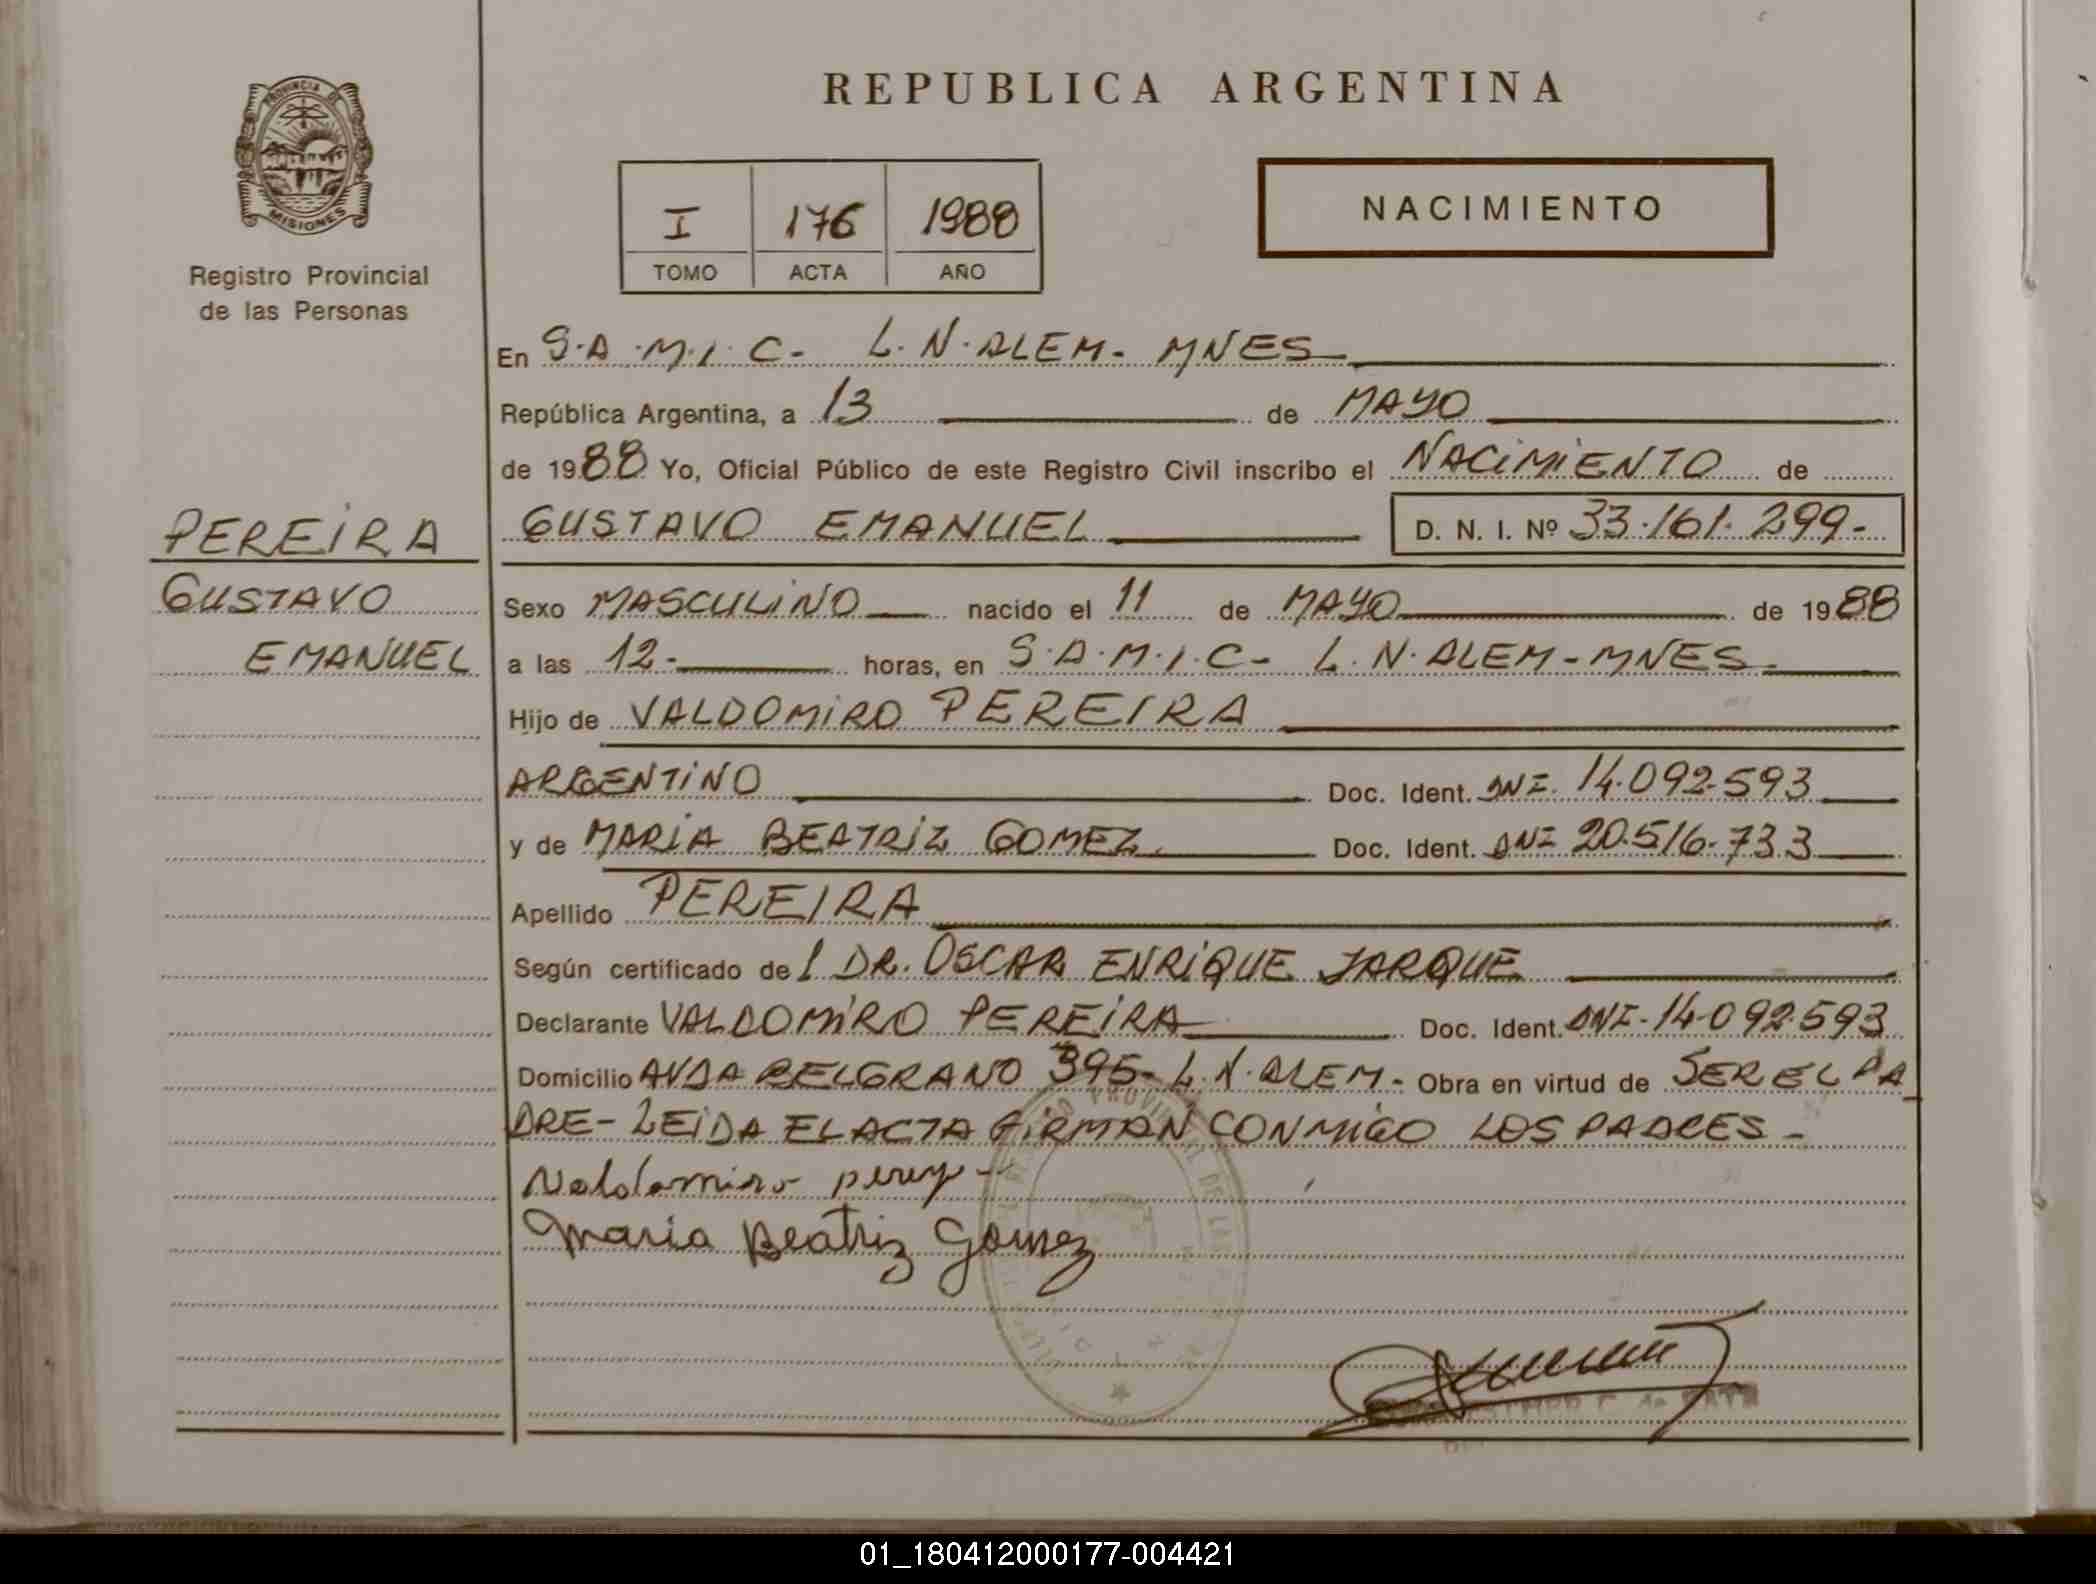 REPUBLICA ARGENTINA
PROVINCIA DE
MISIONES
Registro Provincial
de las Personas
I 176 1988
TOMO ACTA AÑO
NACIMIENTO
En S.A.M.I.C- L.N.ALEM- MNES
República Argentina, a 13 de MAYO
de 1988 Yo, Oficial Público de este Registro Civil inscribo el NACIMIENTO de
PEREIRA
GUSTAVO
EMANUEL
GUSTAVO EMANUEL D. N. I. Nº 33.161.299-
Sexo MASCULINO nacido el 11 de MAYO de 1988
a las 12- horas, en S.A.M.I.C- L.N.ALEM-MNES-
Hijo de VALDOMIRO PEREIRA
ARGENTINO Doc. Ident. DNI. 14.092.593
y de MARIA BEATRIZ GOMEZ Doc. Ident. DNI 20.516.733
Apellido PEREIRA
Según certificado del DR. OSCAR ENRIQUE JARQUE
Declarante VALDOMIRO PEREIRA Doc. Ident. DNI-14.092.593
Domicilio AVDA BELGRANO 395- L.N.ALEM- Obra en virtud de SER EL PA
DRE- LEIDA EL ACTA FIRMAN CONMIGO LOS PADRES-
Valdomiro
Maria Beatriz Gomez
01_180412000177-004421